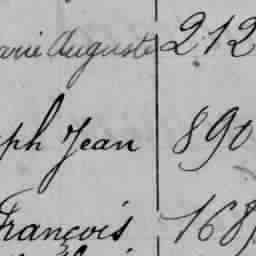 arie Auguste 212
ph Jean 890
François 168